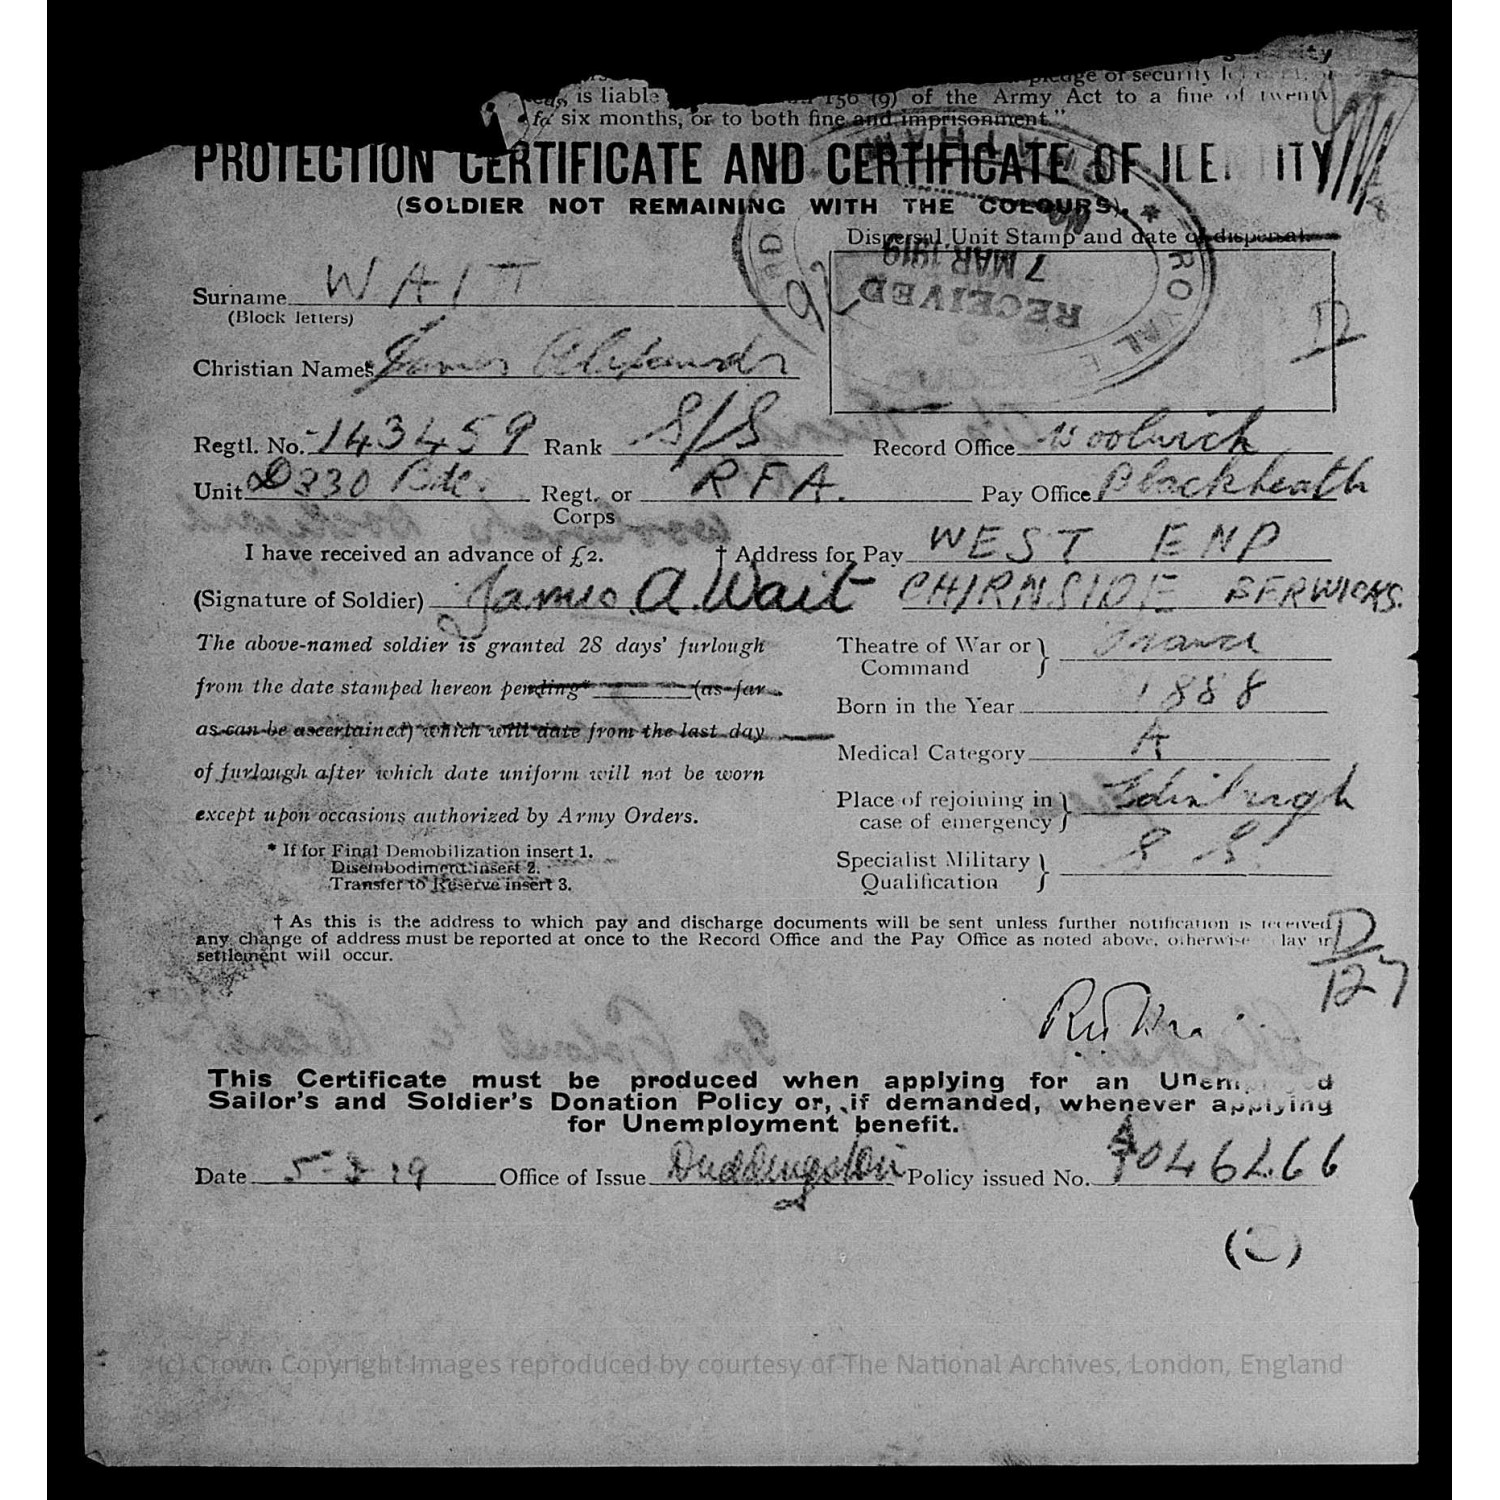 pledge of security
is liable 156 (9) of the Army Act to a fine of twenty
six months, or to both fine and imprisonment."
PROTECTION CERTIFICATE AND CERTIFICATE OF
(SOLDIER NOT REMAINING WITH THE COLOURS).
Dispersal Unit Stamp and date of dispersal
ROYAL
RECEIVED
7 MAR.1919
92
D
Surname WAIT
(Block letters)
Christian Names James Alexander
Regtl. No. 143459 Rank S/S Record Office Woolwich
Unit D330 Bde. Regt. or RFA. Pay Office Blackheath
Corps
I have received an advance of £2. † Address for Pay WEST END
(Signature of Soldier) James A. Wait CHIRNSIDE BERWICKS.
The above-named soldier is granted 28 days' furlough
from the date stamped hereon pending* (as far
as can be ascertained) which will date from the last day
of furlough after which date uniform will not be worn
except upon occasions authorized by Army Orders.
* If for Final Demobilization insert 1.
Disembodiment insert 2.
Transfer to Reserve insert 3.
Theatre of War or } France
Command
Born in the Year 1888
Medical Category A
Place of rejoining in } Edinburgh
case of emergency
Specialist Military } S S
Qualification
† As this is the address to which pay and discharge documents will be sent unless further notification is received
any change of address must be reported at once to the Record Office and the Pay Office as noted above, otherwise
settlement will occur.
D
127
This Certificate must be produced when applying for an
Sailor's and Soldier's Donation Policy or, if demanded, whenever applying
for Unemployment benefit.
Date 5-3-19 Office of Issue Duddingston Policy issued No. A046266
(c) Crown Copyright Images reproduced by courtesy of The National Archives, London, England